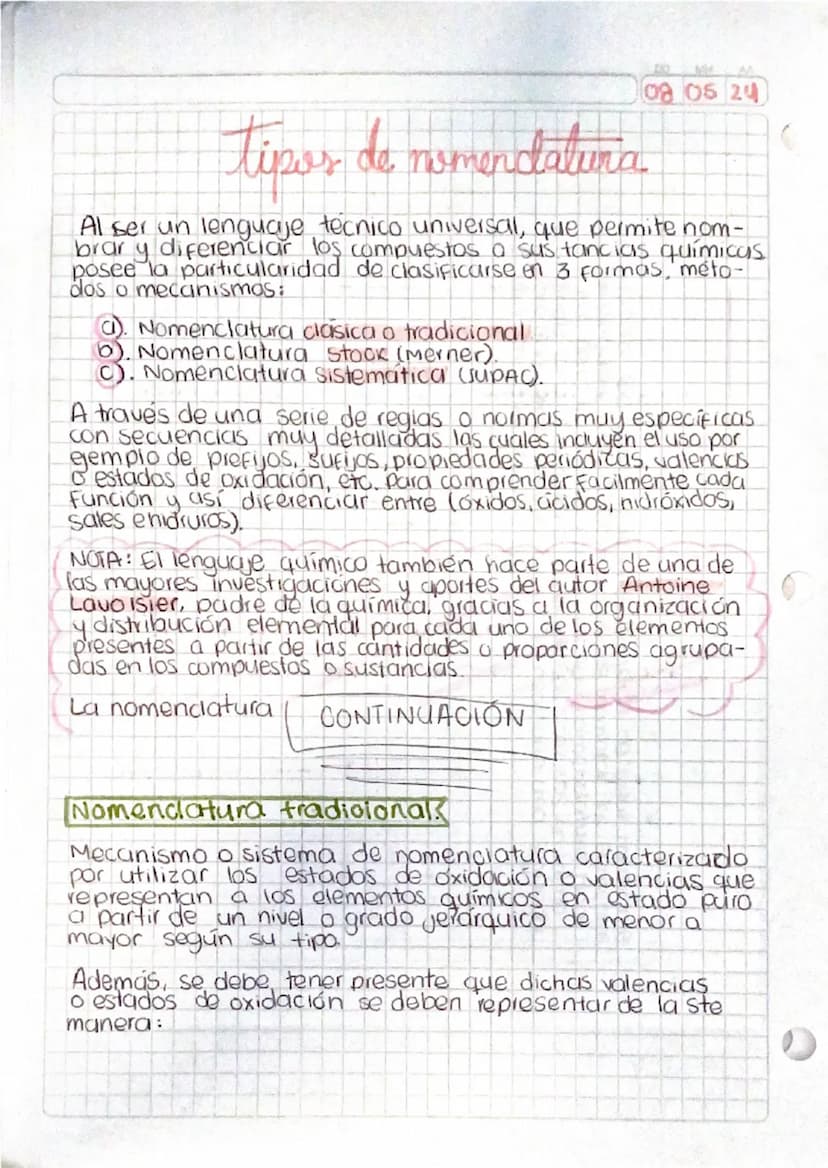 DD MM AA
08 05 24
tipos de nomenclatura
Al ser un lenguaje técnico universal, que permite nom-
brar y diferenciar los compuestos o sustancias químicas
posee la particularidad de clasificarse en 3 formas, méto-
dos o mecanismos:
a). Nomenclatura clásica o tradicional
b). Nomenclatura Stock (Merner).
c). Nomenclatura Sistemática (IUPAC).
A través de una serie de reglas o normas muy específicas
con secuencias muy detalladas las cuales incluyen el uso por
ejemplo de prefijos, sufijos, propiedades periódicas, valencias
o estados de oxidación, etc. Para comprender facilmente cada
función y así diferenciar entre (óxidos, ácidos, hidróxidos,
sales e hidruros).
NOTA: El lenguaje químico también hace parte de una de
las mayores investigaciones y aportes del autor Antoine
Lavoisier, padre de la química, gracias a la organización
y distribución elemental para cada uno de los elementos
presentes a partir de las cantidades o proporciones agrupa-
das en los compuestos o sustancias.
La nomenclatura CONTINUACIÓN
Nomenclatura tradicional
Mecanismo o sistema de nomenclatura caracterizado
por utilizar los estados de oxidación o valencias que
representan a los elementos químicos en estado puro
a partir de un nivel o grado jerárquico de menor a
mayor según su tipo.
Además, se debe tener presente que dichas valencias
o estados de oxidación se deben representar de la ste
manera: